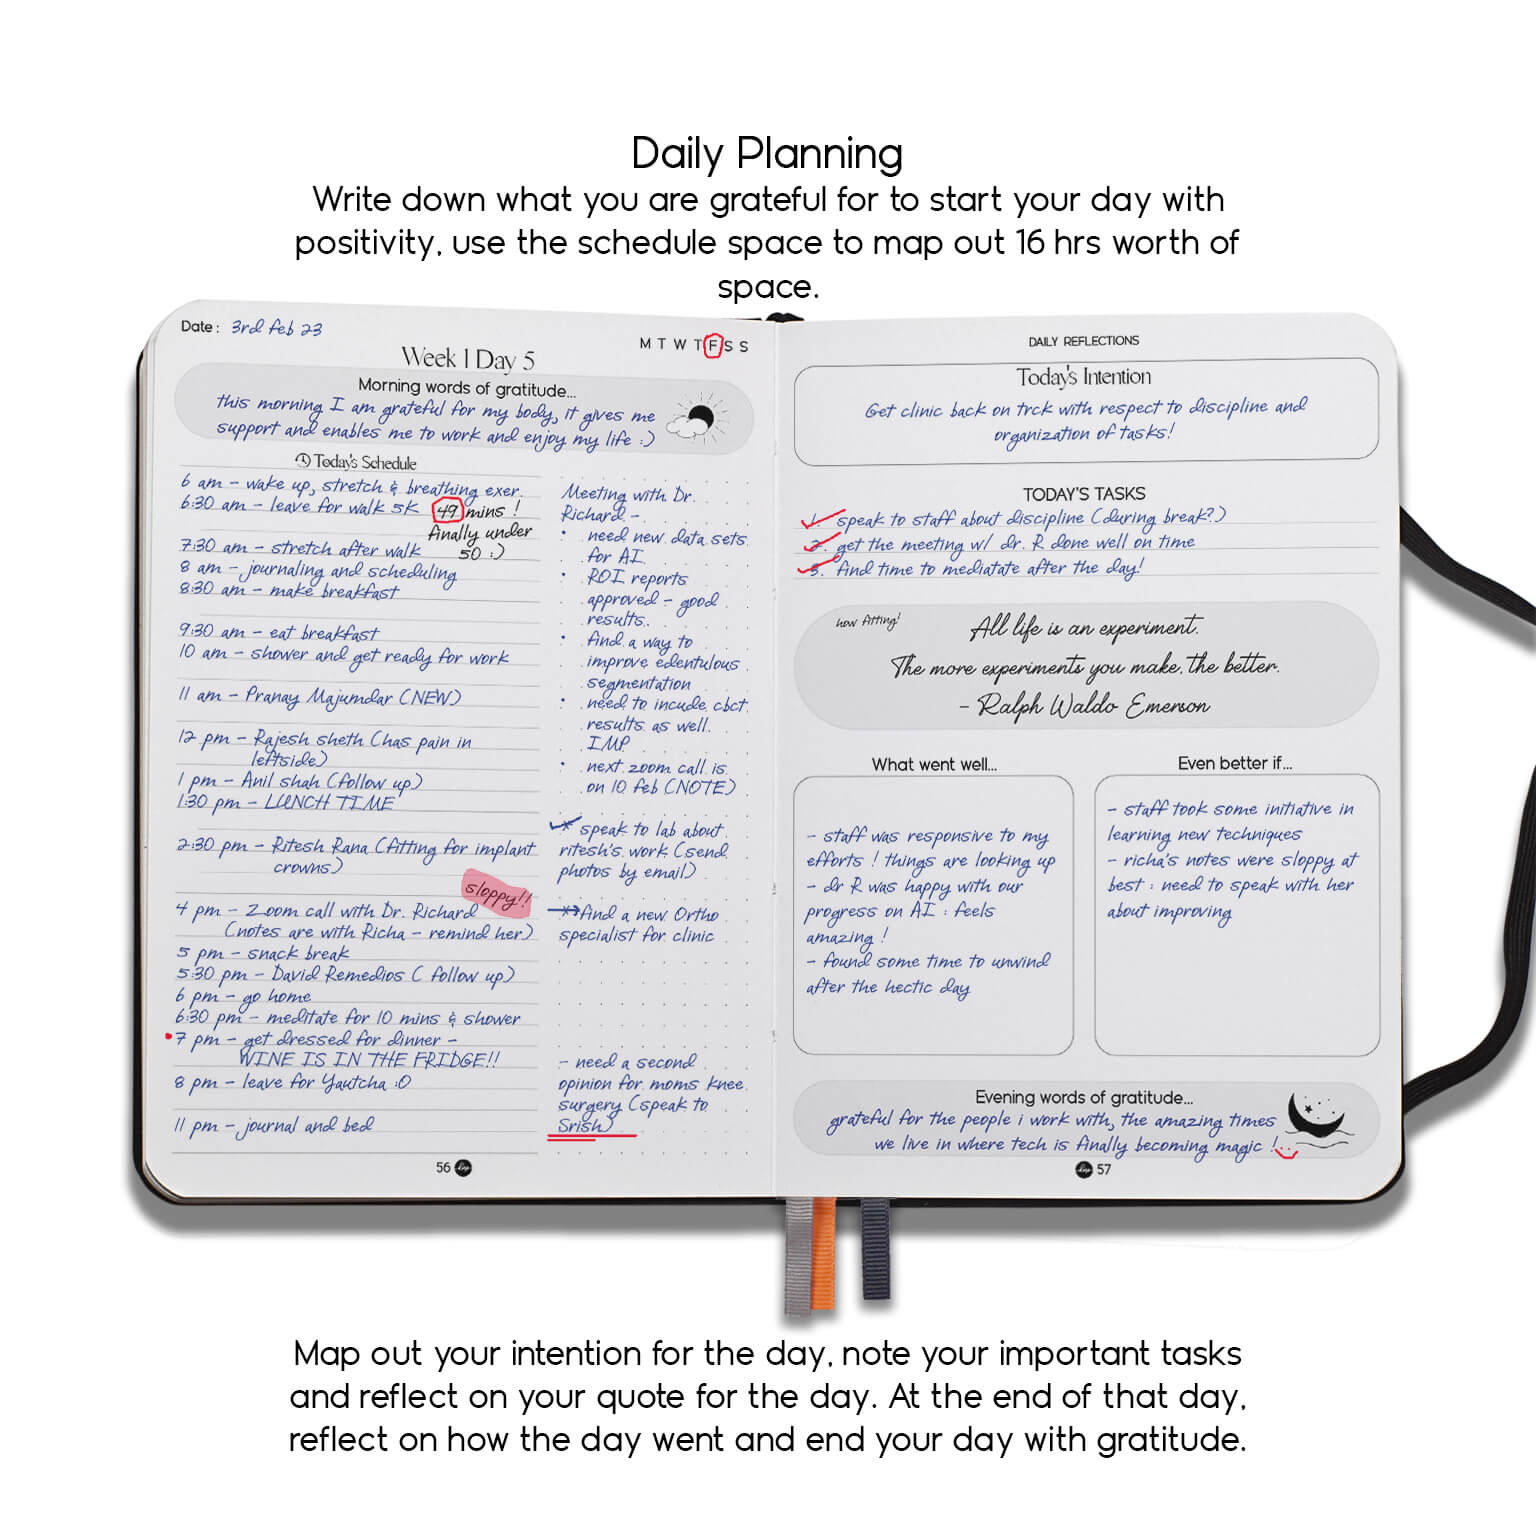 Daily Planning
Write down what you are grateful for to start your day with
positivity, use the schedule space to map out 16 hrs worth of
space.
Date : 3rd feb 23
M T W T F S S
Week 1 Day 5
Morning words of gratitude...
this morning I am grateful for my body, it gives me
support and enables me to work and enjoy my life :)
Today's Schedule
6 am - wake up, stretch & breathing exer.
6:30 am - leave for walk 5K 49 mins !
finally under
50 :)
7:30 am - stretch after walk
8 am - journaling and scheduling
8:30 am - make breakfast
9:30 am - eat breakfast
10 am - shower and get ready for work
11 am - Pranay Majumdar (NEW)
12 pm - Rajesh sheth (has pain in
leftside)
1 pm - Anil shah (follow up)
1:30 pm - LUNCH TIME
2:30 pm - Ritesh Rana (fitting for implant
crowns)
sloppy!!
4 pm - Zoom call with Dr. Richard
(notes are with Richa - remind her)
5 pm - snack break
5:30 pm - David Remedios ( follow up)
6 pm - go home
6:30 pm - meditate for 10 mins & shower
7 pm - get dressed for dinner -
WINE IS IN THE FRIDGE!!
8 pm - leave for Yautcha :O
11 pm - journal and bed
Meeting with Dr.
Richard -
• need new data sets
for AI
• ROI reports
approved - good
results.
• find a way to
improve edentulous
segmentation
• need to incude cbct
results as well.
IMP
• next zoom call is
on 10 feb (NOTE)
* speak to lab about
ritesh's work (send
photos by email)
* find a new Ortho
specialist for clinic
- need a second
opinion for moms knee
surgery (speak to
Srish)
56
DAILY REFLECTIONS
Today's Intention
Get clinic back on trck with respect to discipline and
organization of tasks!
TODAY'S TASKS
1. speak to staff about discipline (during break?)
2. get the meeting w/ dr. R done well on time
3. find time to mediatate after the day!
how fitting!
All life is an experiment.
The more experiments you make, the better.
- Ralph Waldo Emerson
What went well...
- staff was responsive to my
efforts ! things are looking up
- dr R was happy with our
progress on AI : feels
amazing !
- found some time to unwind
after the hectic day
Even better if...
- staff took some initiative in
learning new techniques
- richa's notes were sloppy at
best : need to speak with her
about improving
Evening words of gratitude...
grateful for the people i work with, the amazing times
we live in where tech is finally becoming magic !
57
Map out your intention for the day, note your important tasks
and reflect on your quote for the day. At the end of that day,
reflect on how the day went and end your day with gratitude.